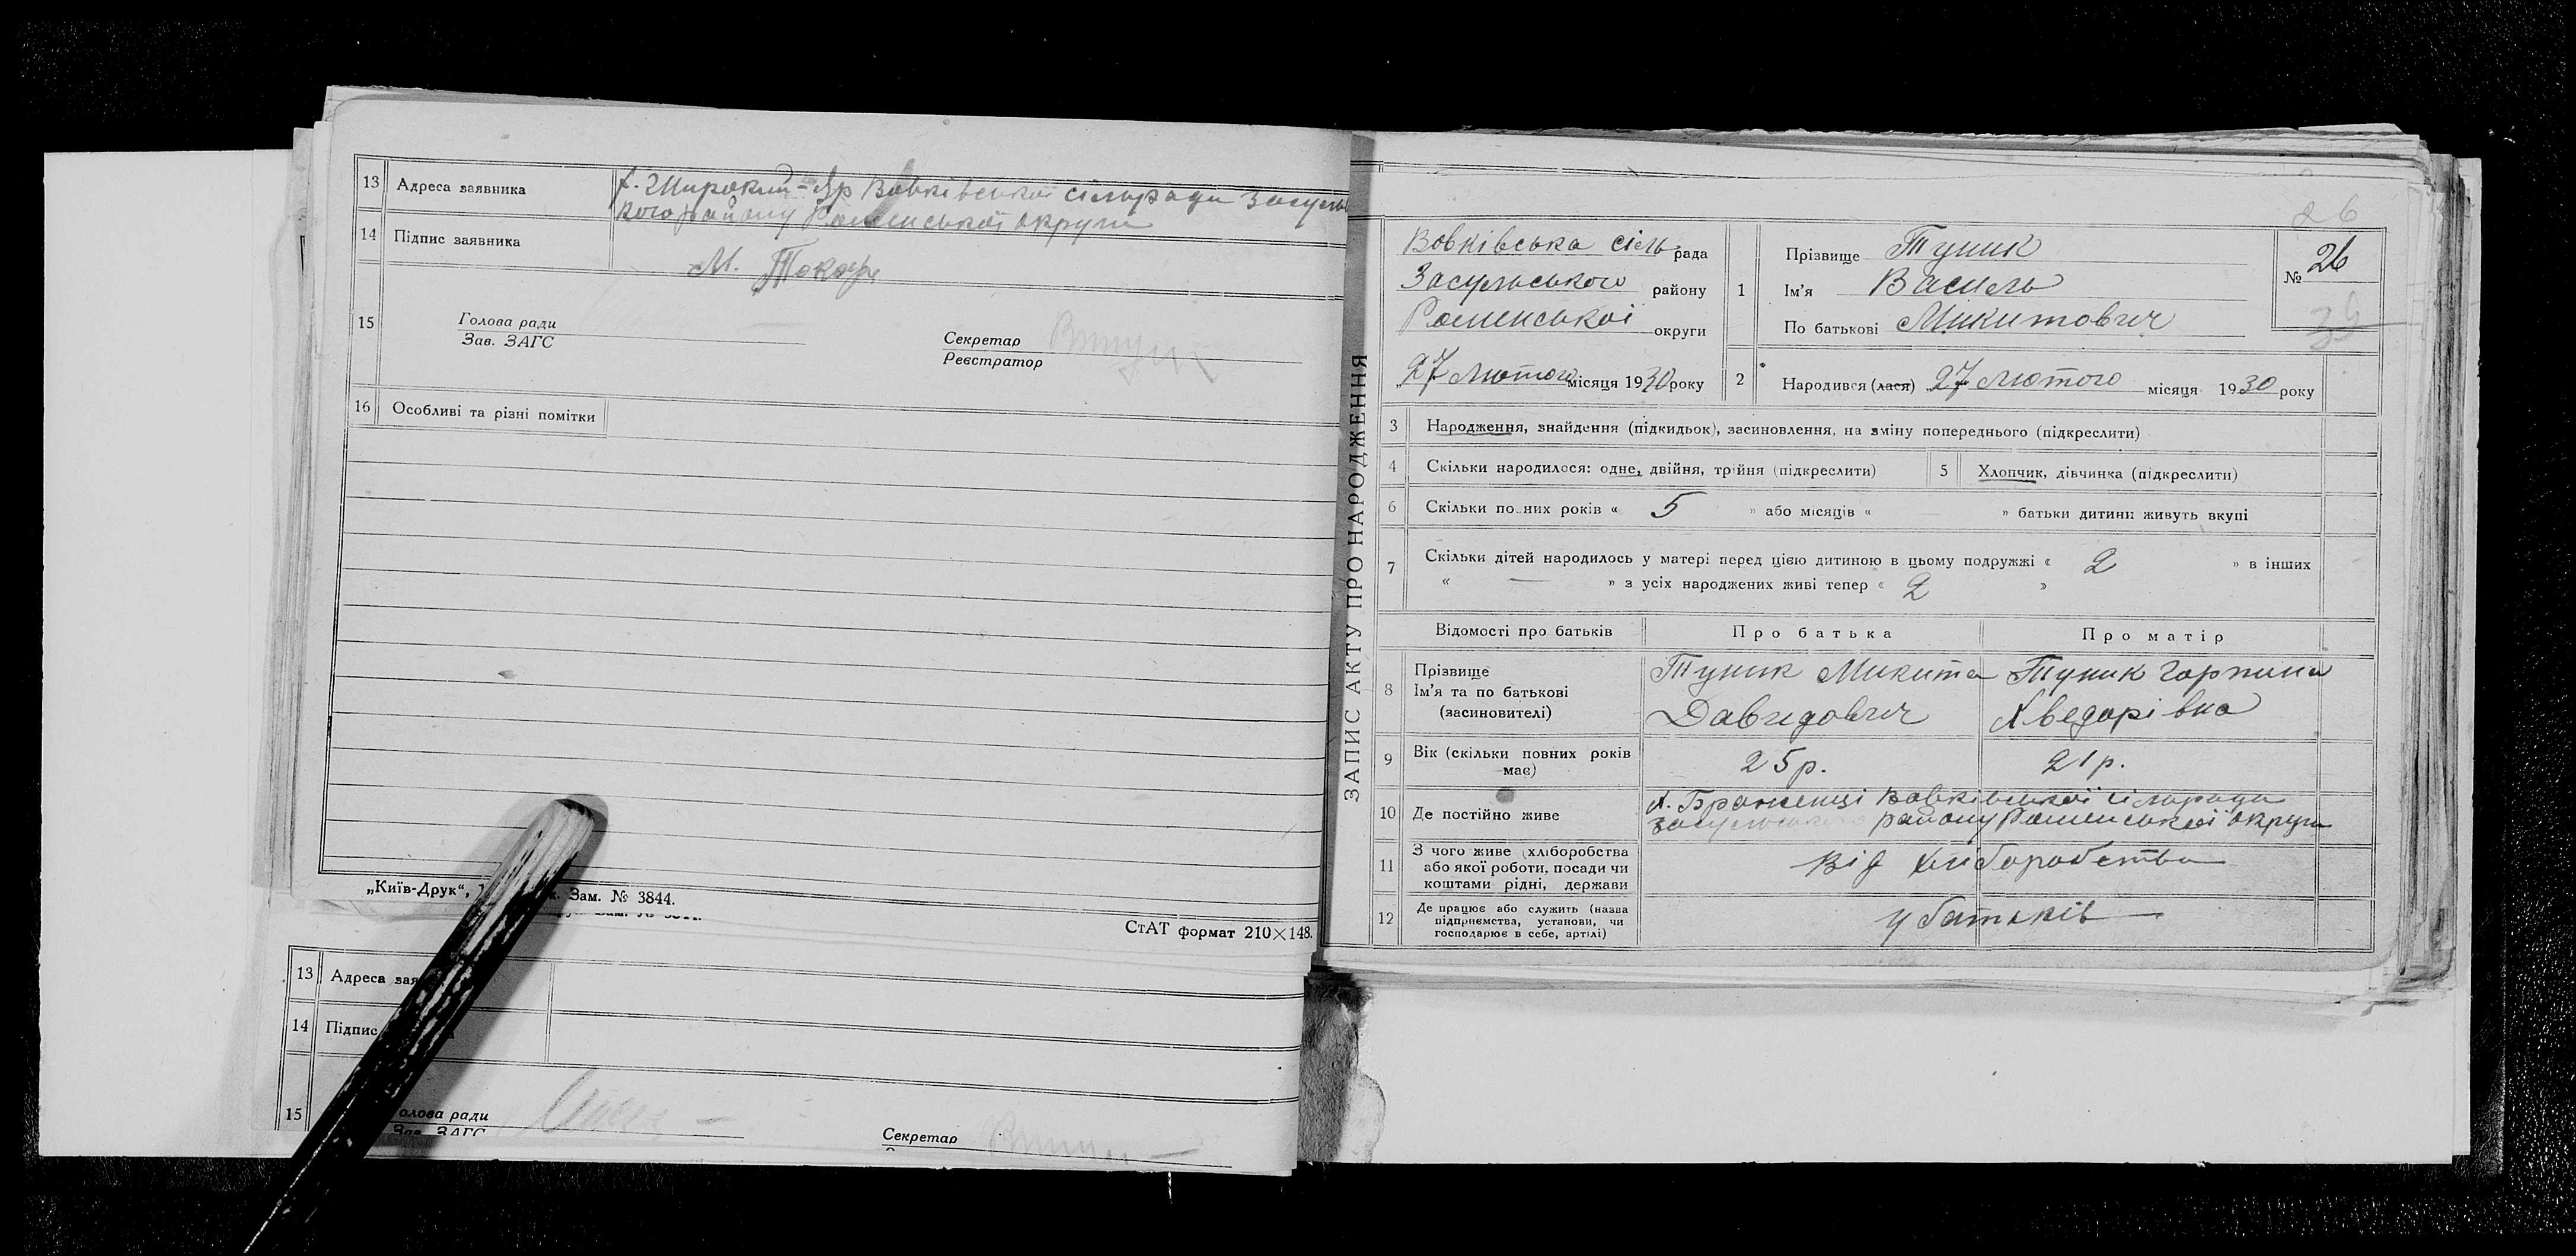 13 Адреса заявника х. Широкий-Яр Вовківської сільради Засульсь
кого району Роменської округи
14 Підпис заявника М. Токар
15 Голова ради
Зав. ЗАГС
Секретар
Реєстратор
16 Особливі та різні помітки
„Київ-Друк“, Зам. № 3844.
СтАТ формат 210×148.
13 Адреса зая
14 Підпис
15 олова ради
Зав. ЗАГС
Секретар
ЗАПИС АКТУ ПРО НАРОДЖЕННЯ
26
Вовківська сіль рада
Засульського району
Роменської округи
„27 Лютого місяця 1930 року
1 Прізвище Туник
Ім'я Василь
По батькові Микитович
№ 26
39
2 Народився (лася) 27 Лютого місяця 1930 року
3 Народження, знайдення (підкидьок), засиновлення, на зміну попереднього (підкреслити)
4 Скільки народилося: одне, двійня, трійня (підкреслити) 5 Хлопчик, дівчинка (підкреслити)
6 Скільки повних років « 5 » або місяців « — » батьки дитини живуть вкупі
7 Скільки дітей народилось у матері перед цією дитиною в цьому подружжі « 2 » в інших
« — » з усіх народжених живі тепер « 2 »
Відомості про батьків Про батька Про матір
8 Прізвище
Ім'я та по батькові
(засиновителі)
Туник Микита
Давидович
Туник Горпина
Хведорівна
9 Вік (скільки повних років
має)
25 р. 21 р.
10 Де постійно живе х. Браженці Вовківської сільради
Засульського району Роменської округи
11 З чого живе (хліборобства
або якої роботи, посади чи
коштами рідні, держави
Від хліборобства
12 Де працює або служить (назва
підприємства, установи, чи
господарює в себе, артілі)
у батьків —